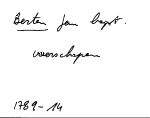 Berten Jan bapt.
voorschapen
1789-14